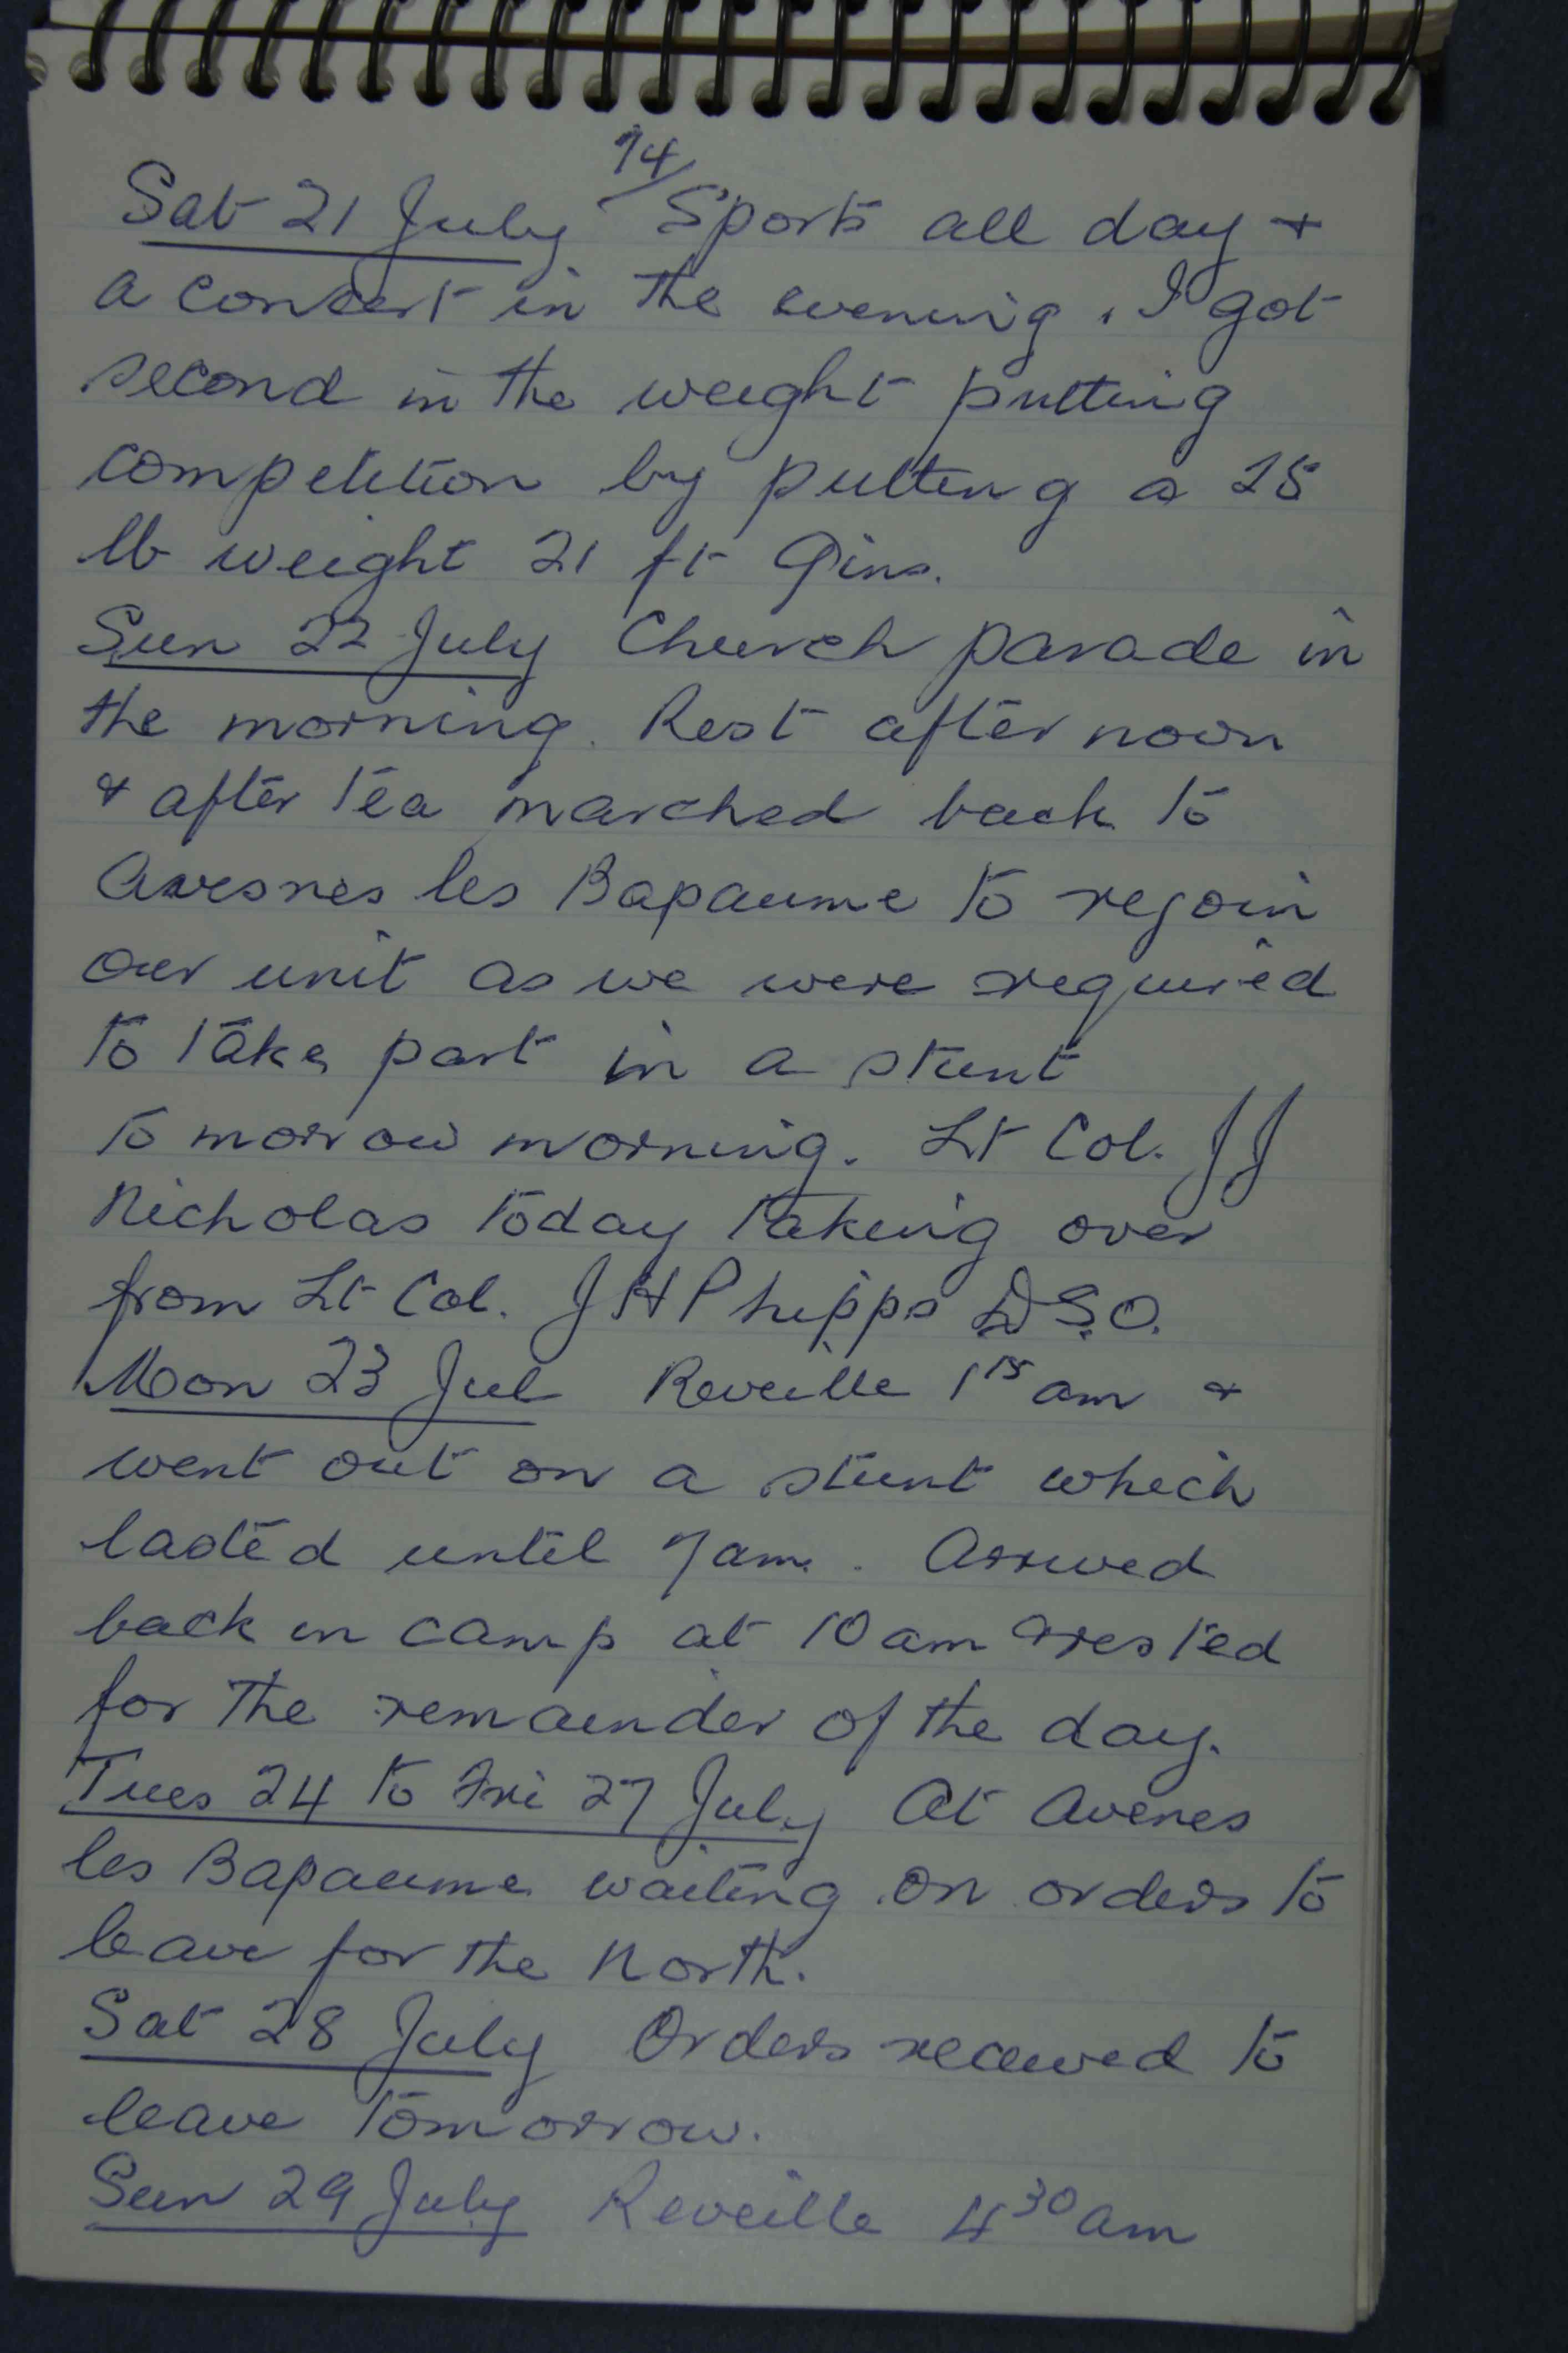 74/
Sat 21 July Sports all day +
a concert in the evening. I got
second in the weight putting
competition by putting a 28
lb weight 21 ft 9ins.
Sun 22 July Church parade in
the morning. Rest after noon
& after tea marched back to
Avesnes les Bapaume to rejoin
our unit as we were required
to take part in a stunt
to morrow morning. Lt Col. JJ
Nicholas today taking over
from Lt Col. J H Phipps D.S.O.
Mon 23 Jul Reveille 1 15 am &
went out on a stunt which
lasted until 7am. Arrived
back in camp at 10 am & rested
for the remainder of the day.
Tues 24 to Fri 27 July At Avenes
les Bapaume waiting on orders to
leave for the North.
Sat 28 July Orders received to
leave tomorrow.
Sun 29 July Reveille 4 30 am